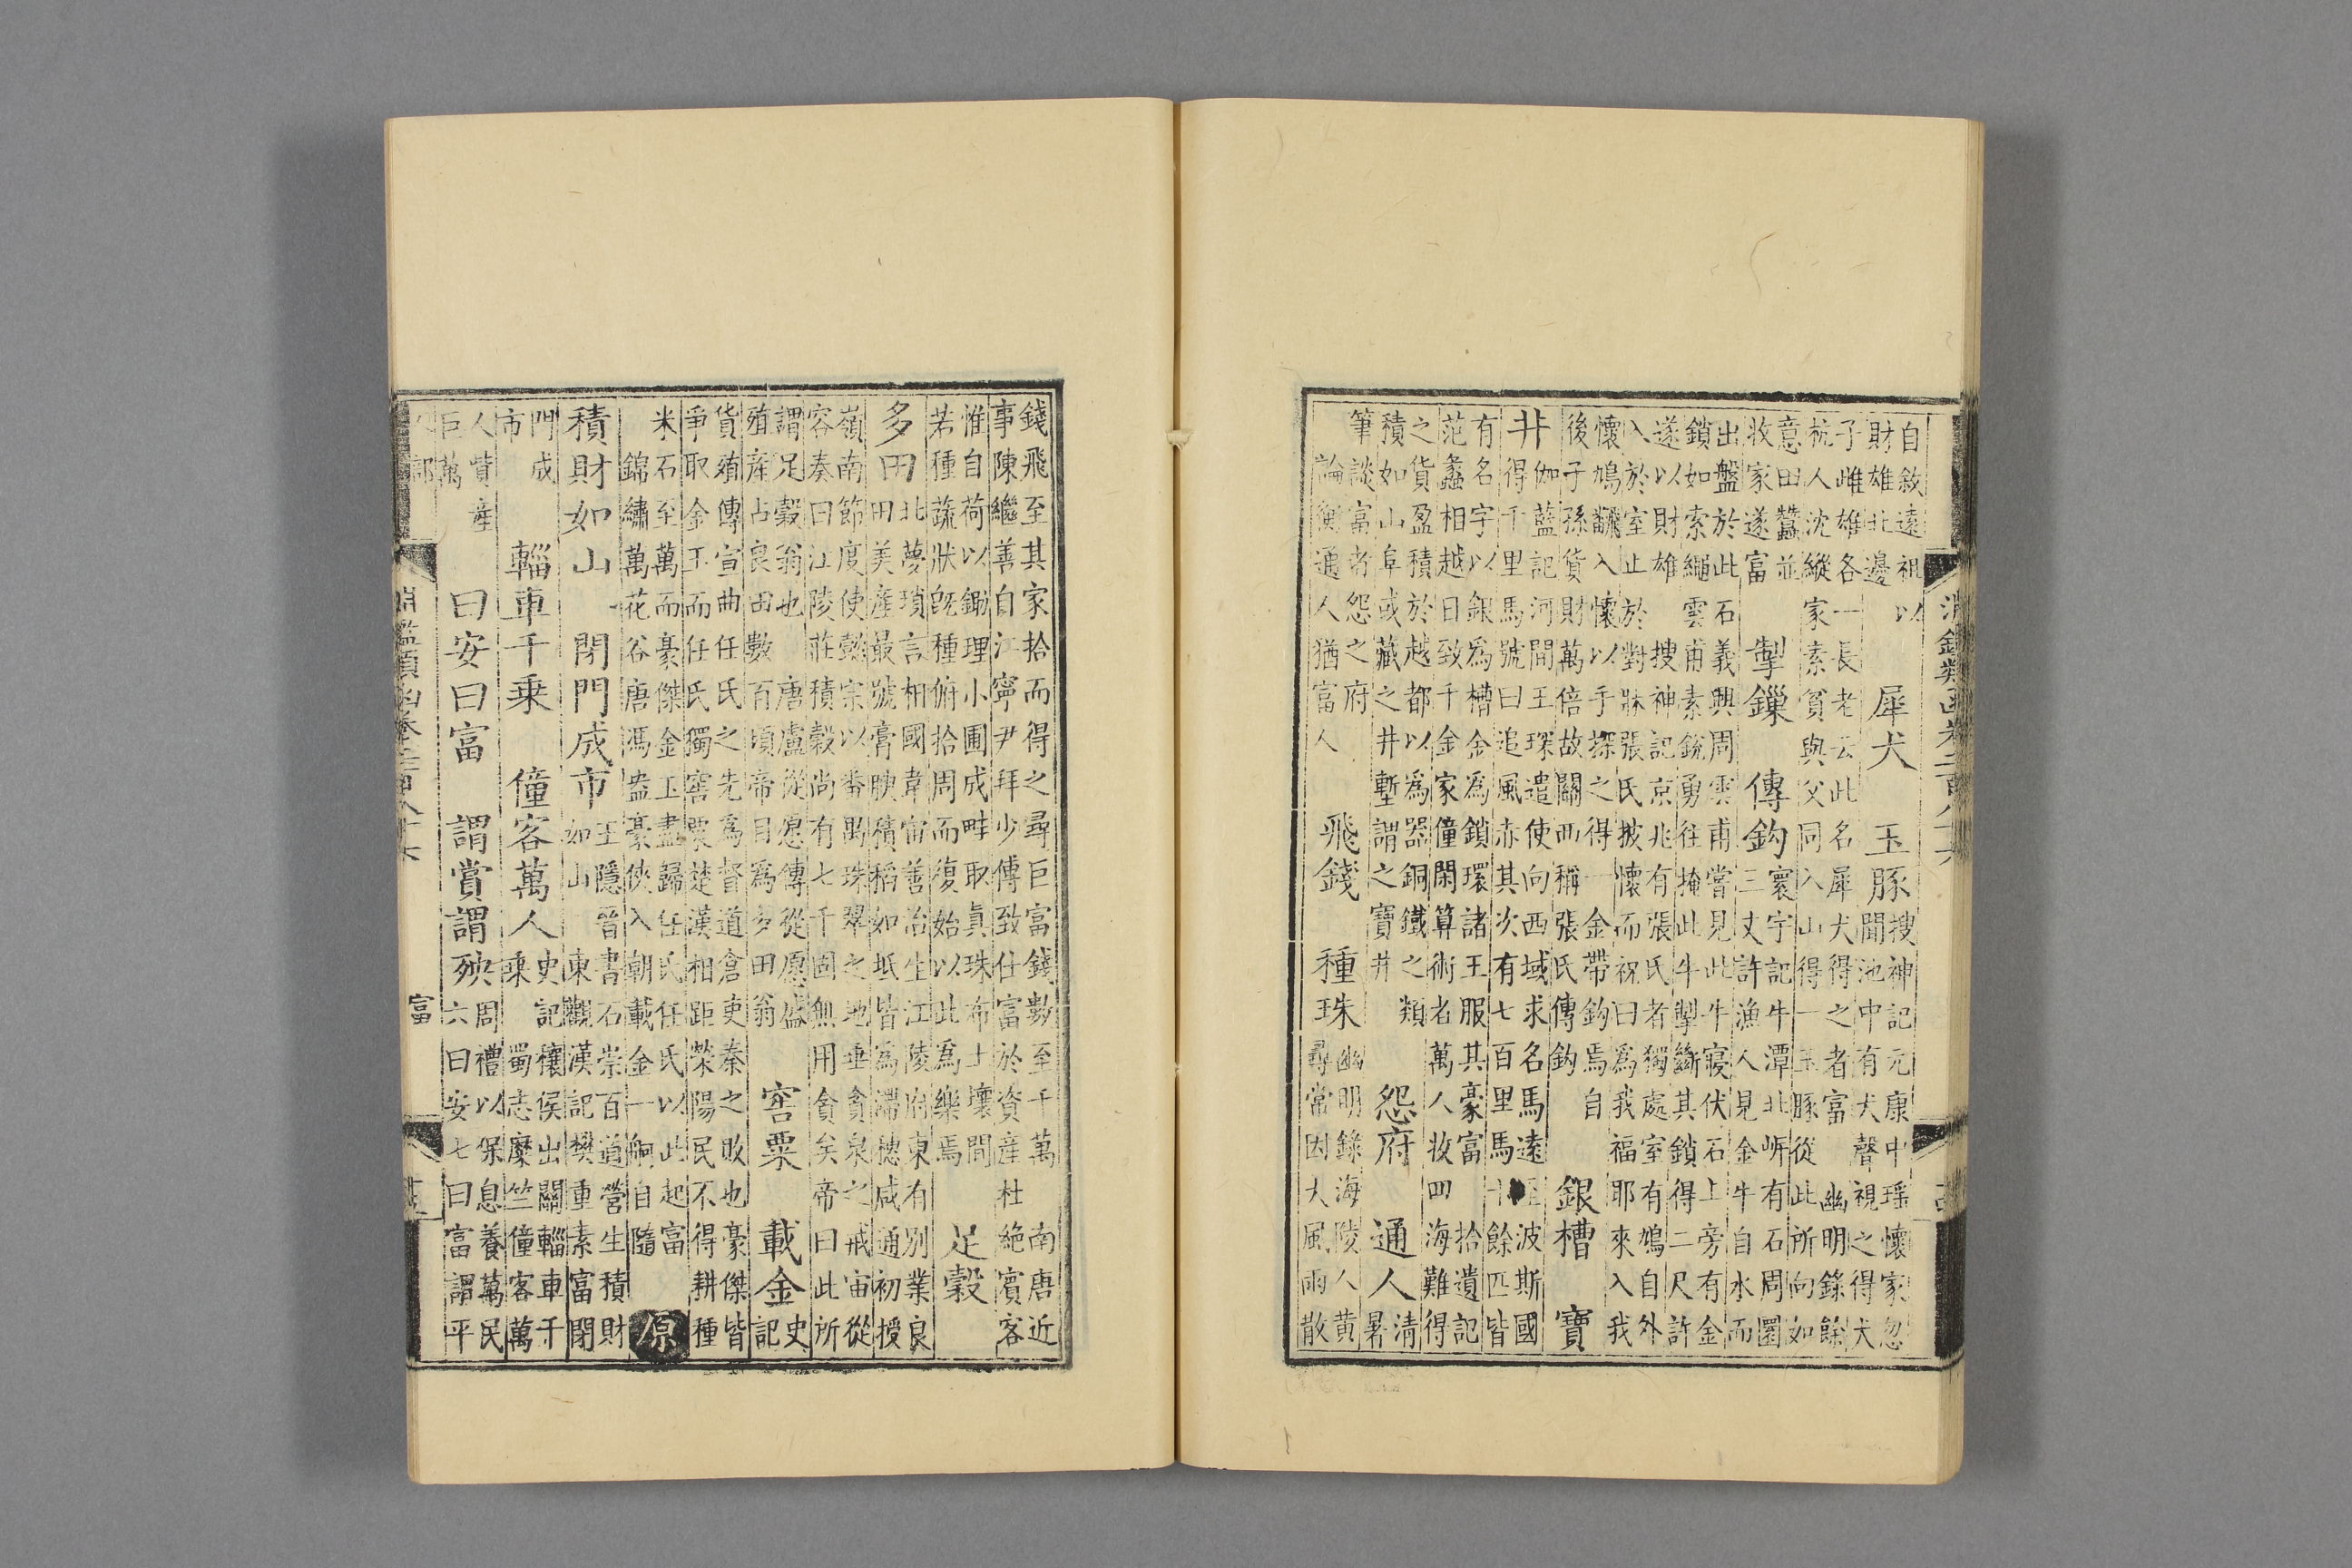 淵鑑類函卷二百八十六
自敘遠祖以
財雄北邊
犀犬 玉豚
搜神記元康中瑶懷家忽
聞池中有犬聲視之得犬
子雌雄各一長老云此名犀犬得之者富 幽明錄餘
杭人沈縱家素貧與父同入山得一玉豚從此所向如
意田蠶並
收家遂富
掣鏁 傳鈎
寰宇記牛潭北岍有石周圜
三丈許漁人見金牛自水而
出盤於此石義興周雲甫嘗見此牛寢伏石上旁有金
鎖如索繩雲甫素銳勇往掩此牛掣斷其鎖得二尺許
遂以財雄 搜神記京兆有張氏者獨處室有鳩自外
入於室止於對牀張氏披懷而祝曰為我福耶來入我
懷鳩飜入懷以手探之得一金帶鈎焉自
後子孫貨財萬倍故關西稱張氏傳鈎
銀槽 寶
井
伽藍記河間王琛遣使向西域求名馬遠至波斯國
得千里馬號曰追風赤其次有七百里馬十餘匹皆
有名字以銀為槽金為鎖環諸王服其豪富 拾遺記
范蠡相越日致千金家僮閑算術者萬人收四海難得
之貨盈積於越都以為器銅鐵之類
積如山阜或藏之井塹謂之寶井
怨府 通人
清
暑
筆談富者怨之府
論衡通人猶富人
飛錢 種珠
幽明錄海陵人黄
尋常因大風雨散
錢飛至其家拾而得之尋巨富錢數至千萬 南唐近
事陳繼善自江寧尹拜少傅致仕富於資產杜絕賓客
惟自荷以鋤理小圃成畦取真珠布土壤間
若種蔬狀既種俯拾周而復始以此為樂焉
足穀
多田
北夢瑣言相國韋宙善治生江陵府東有別業良
田美產最號膏腴積稻如坻皆為滯穗咸通初授
嶺南節度使懿宗以番禺珠翠之地垂貪泉之戒宙從
容奏曰江陵莊積穀尚有七千囤無用貪矣帝曰此所
謂足穀翁也 唐盧從愿傳從愿盛
殖產占良田數百頃帝目為多田翁
窖粟 載金
史
記
貨殖傳宣曲任氏之先為督道倉吏秦之敗也豪傑皆
爭取金玉而任氏獨窖粟楚漢相距滎陽民不得耕種
米石至萬而豪傑金玉盡歸任氏任氏以此起富
錦繡萬花谷唐馮盎豪俠入朝載金一舸自隨
原
積財如山 閉門成市
王隱晉書石崇百道營生積財
如山 東觀漢記樊重素富閉
門成
市
輜車千乗 僮客萬人
史記穰侯出關輜車千
乘 蜀志糜竺僮客萬
人貲產
巨萬
曰安曰富 謂賞謂殃
周禮以保息養萬民
六曰安七曰富謂平
淵鑑類函卷二百八十六
富